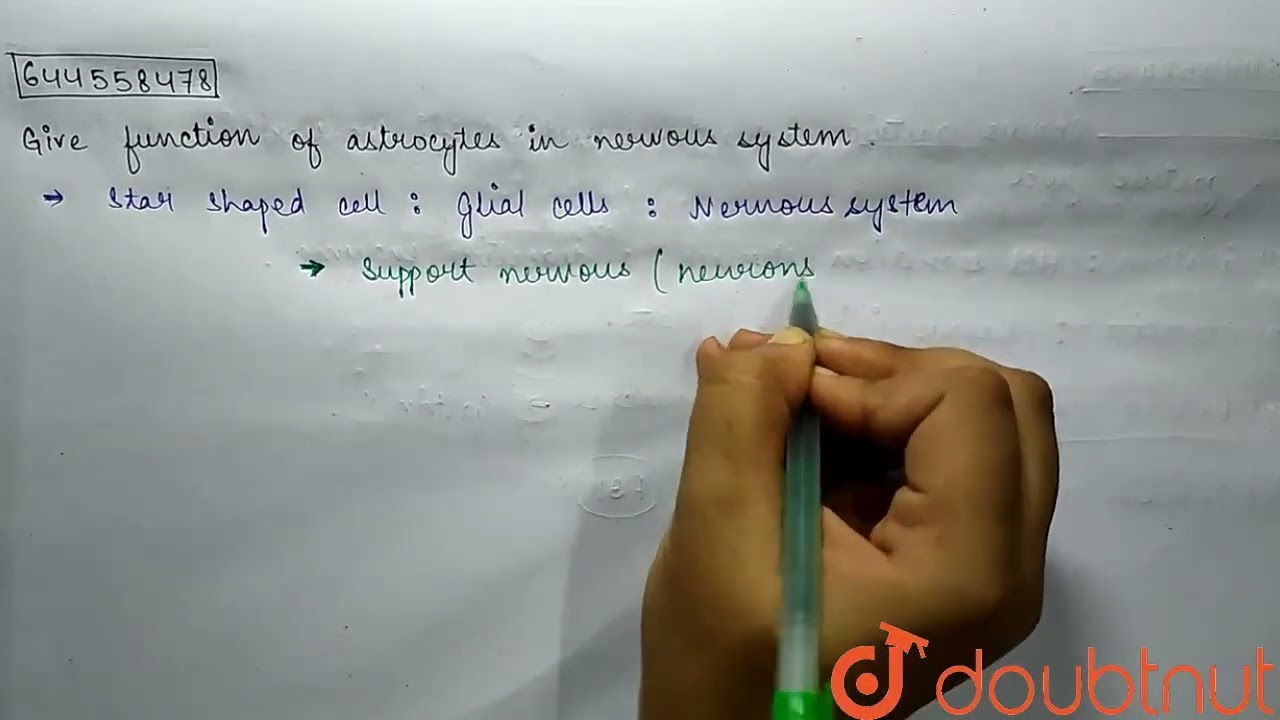 644558478
Give function of astrocytes in nervous system.
→ Star shaped cell : Glial cells : Nervous system
→ Support nervous (neurons
doubtnut